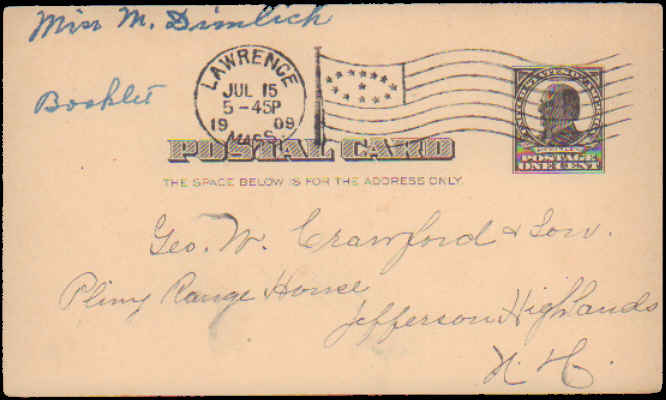 Miss M. Dimlich
Booklet
LAWRENCE
JUL 15
5-45P
1909
MASS.
POSTAL CARD
THE SPACE BELOW IS FOR THE ADDRESS ONLY.
POSTAGE
ONE CENT
Geo. W. Crawford & Son.
Pliny Range House
Jefferson Highlands
N. H.